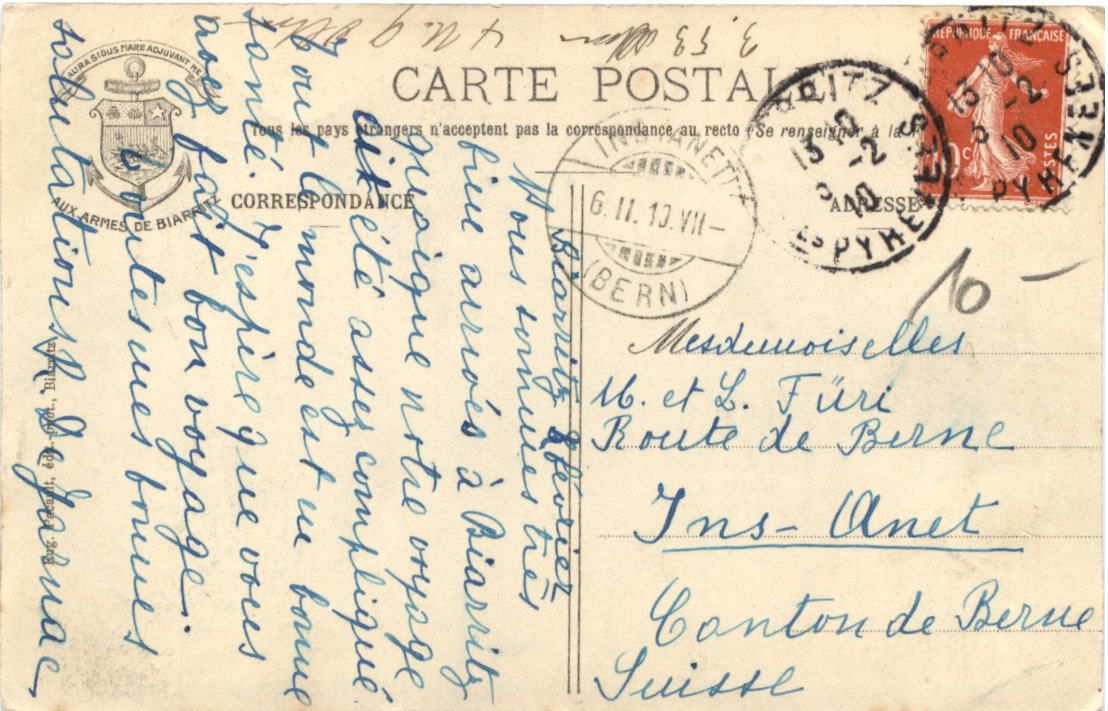 CARTE POSTALE
Tous les pays étrangers n'acceptent pas la correspondance au recto (Se renseigner à la
AURA SIDUS MARE ADJUVANT ME
AUX ARMES DE BIARRITZ
CORRESPONDANCE
ADRESSE
RÉPUBLIQUE FRANÇAISE
10c POSTES
BIARRITZ
13 10
5 -2
10
Bses PYRENEES
BIARRITZ
13 10
5 -2
10
PYRENEES
INS (ANET)
6.II.10.VII-
(BERN)
10 -
Biarritz 5 février
Nous sommes très
bien arrivés à Biarritz
quoique notre voyage
ait été assez compliqué
Tout le monde est en bonne
santé. J'espère que vous
avez fait bon voyage.
à toutes mes bonnes
salutations R. De Jarnac
Mesdemoiselles
M. et L. Füri
Route de Berne
Ins-Anet
Canton de Berne
Suisse
Eug. Pacault, édit.-phot., Biarritz